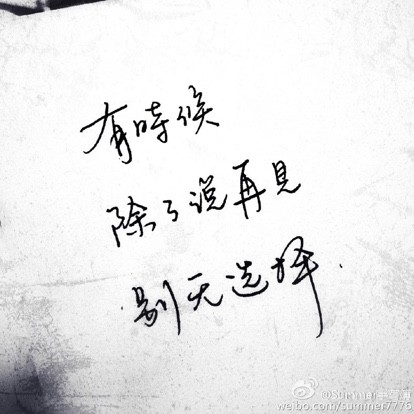 有時候
除了说再見
别无选择.
weibo.com/summer7775